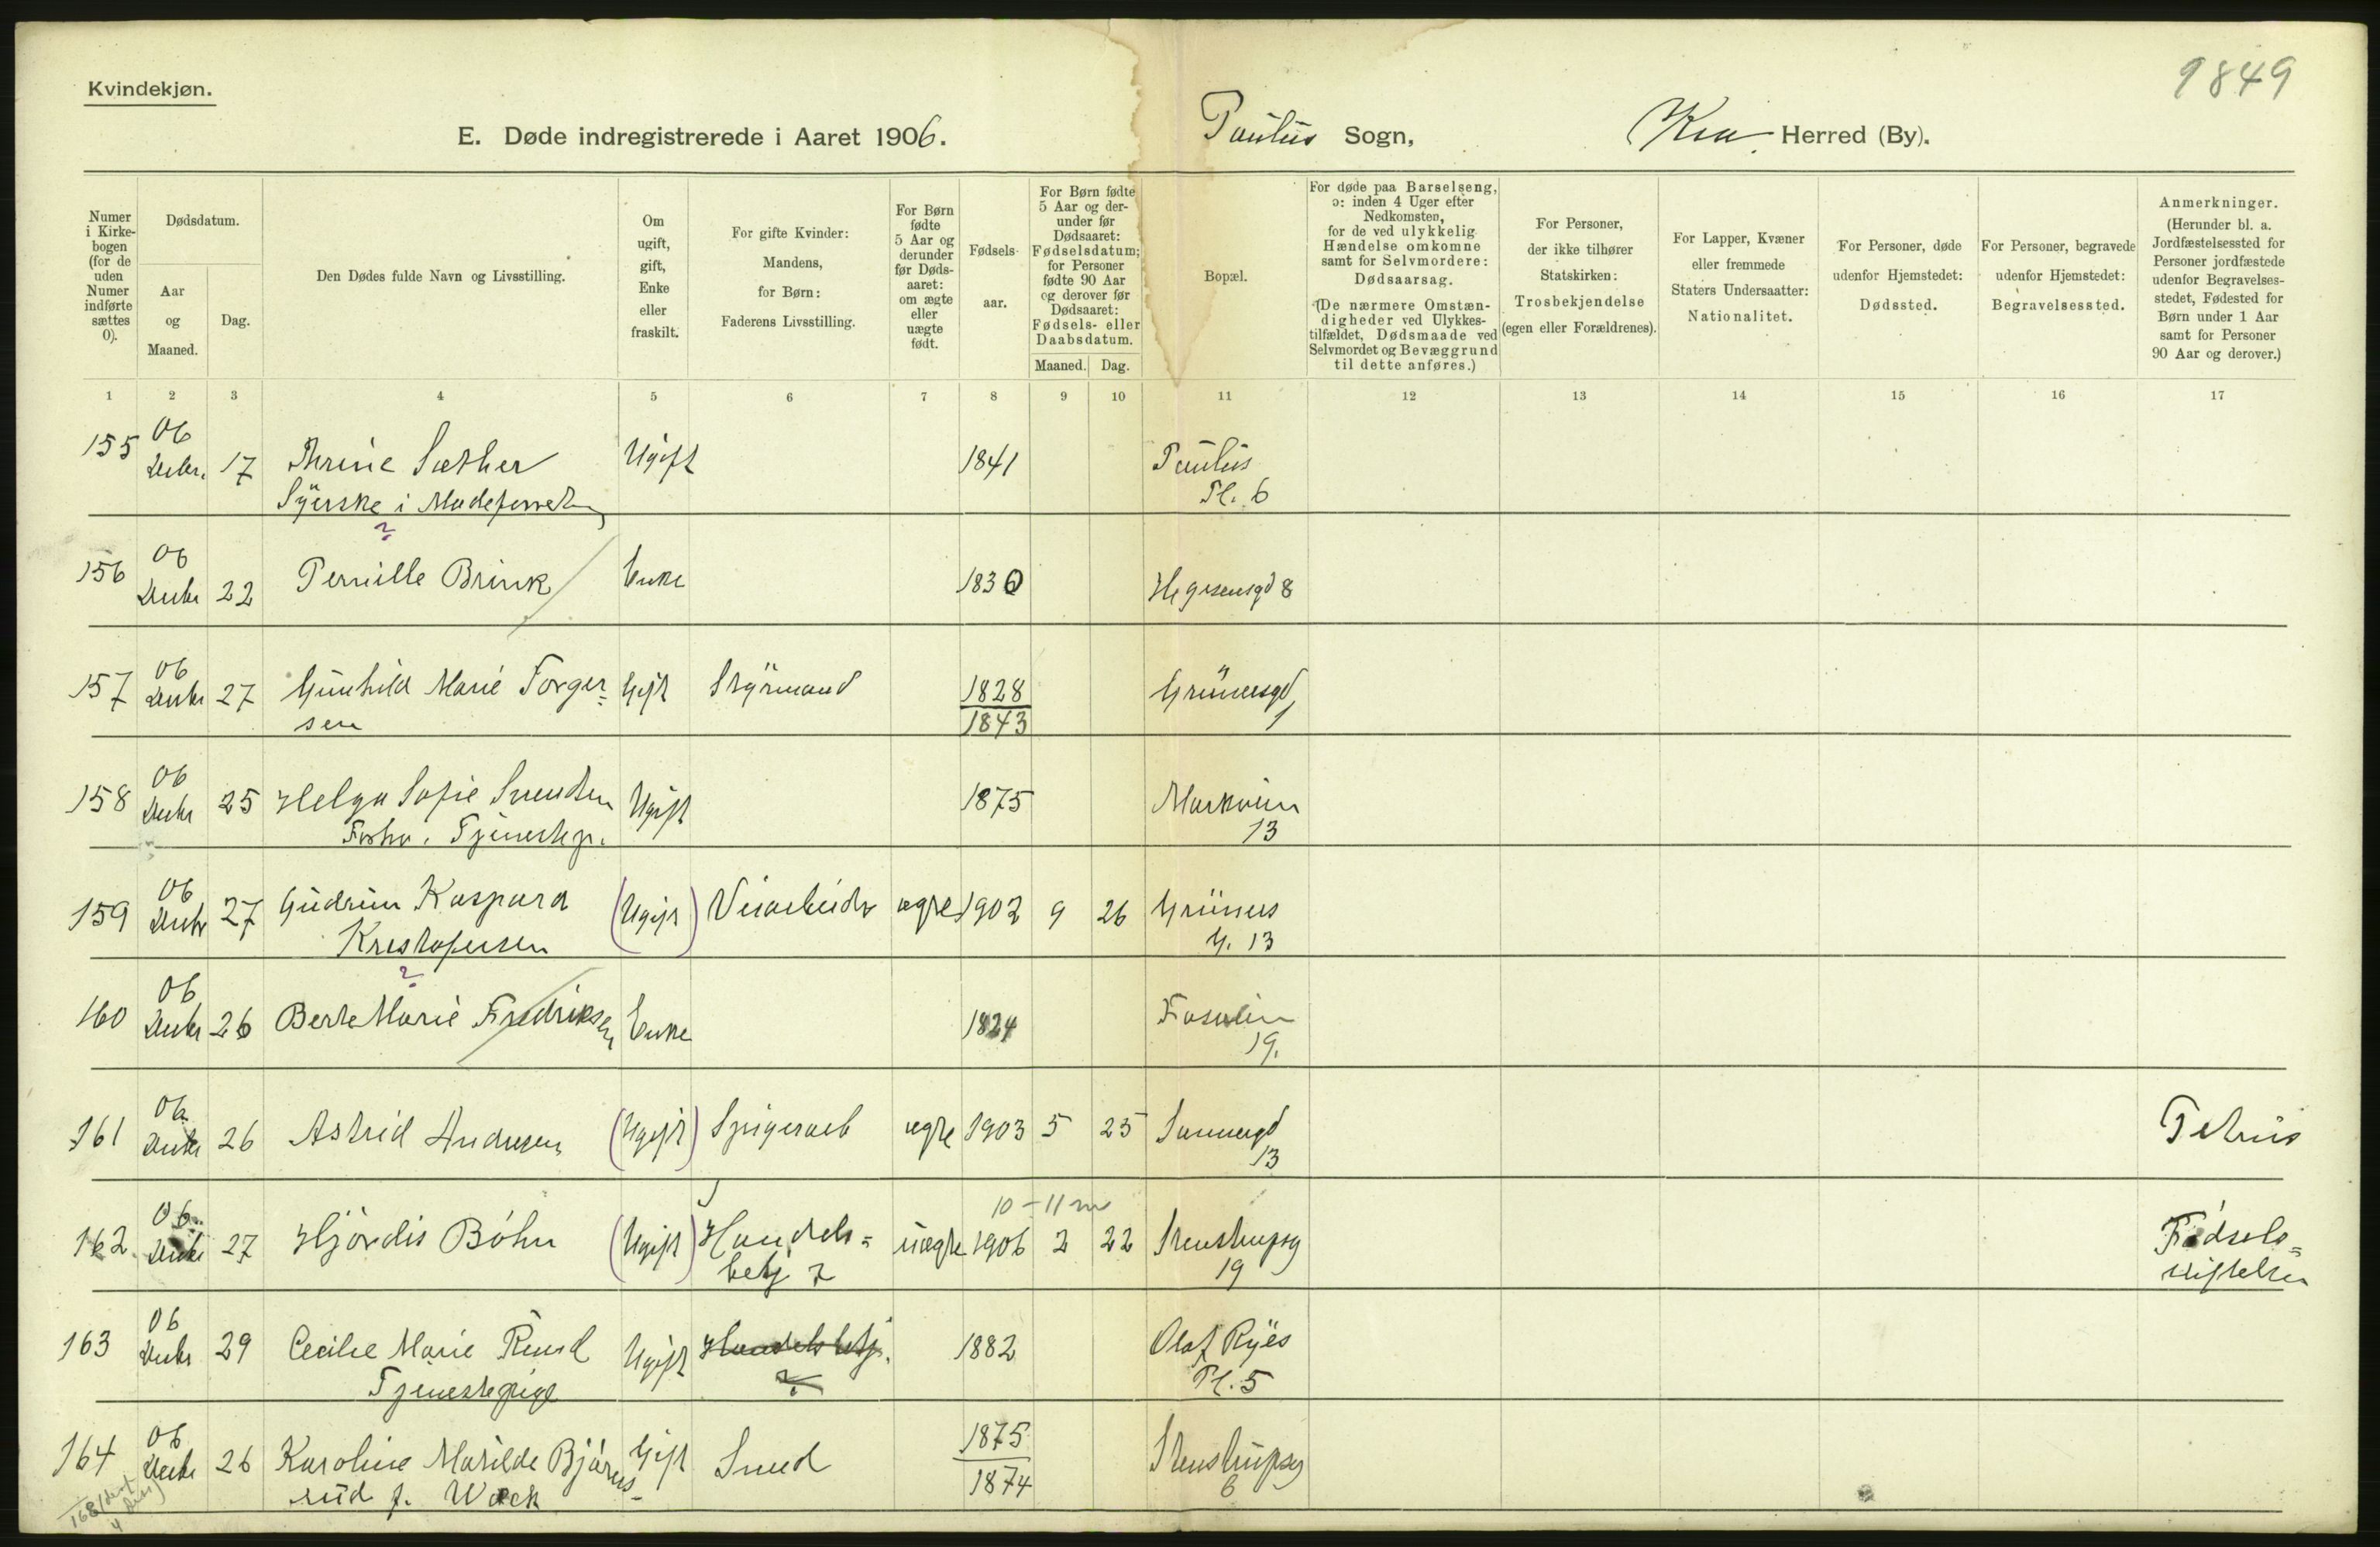 Kvindekjøn.
9849
E. Døde indregistrerede i Aaret 1906. Paulus Sogn, Kra. Herred (By).
Numer i Kirkebogen (for de uden Numer indførte sættes 0).
Dødsdatum.
Aar og Maaned.
Dag.
Den Dødes fulde Navn og Livsstilling.
Om ugift, gift, Enke eller fraskilt.
For gifte Kvinder: Mandens, for Børn: Faderens Livsstilling.
For Børn fødte 5 Aar og derunder før Dødsaaret: om ægte eller uægte født.
Fødselsaar.
For Børn fødte 5 Aar og derunder før Dødsaaret: Fødselsdatum; for Personer fødte 90 Aar og derover før Dødsaaret: Fødsels- eller Daabsdatum.
Maaned. Dag.
Bopæl.
For døde paa Barselseng, ɔ: inden 4 Uger efter Nedkomsten, for de ved ulykkelig Hændelse omkomne samt for Selvmordere: Dødsaarsag.
(De nærmere Omstændigheder ved Ulykkestilfældet, Dødsmaade ved Selvmordet og Bevæggrund til dette anføres.)
For Personer, der ikke tilhører Statskirken: Trosbekjendelse (egen eller Forældrenes).
For Lapper, Kvæner eller fremmede Staters Undersaatter: Nationalitet.
For Personer, døde udenfor Hjemstedet: Dødssted.
For Personer, begravede udenfor Hjemstedet: Begravelsessted.
Anmerkninger.
(Herunder bl. a. Jordfæstelsessted for Personer jordfæstede udenfor Begravelsesstedet, Fødested for Børn under 1 Aar samt for Personer 90 Aar og derover.)
1 2 3 4 5 6 7 8 9 10 11 12 13 14 15 16 17
155 06 Decbr. 17 Thrine Sæther Ugift 1841 Paulus
Syerske i Pl. 6
?
156 06 Decbr 22 Pernille Brink Enke 1830 Helgesensgd 8
157 06 Decbr 27 Gunhild Marie Torger= Gift Styrmand 1828 Grünersgd
sen 1843 1
158 06 Decbr 25 Helga Sofie Svendsen Ugift 1875 Markvein
Forhv. Tjenestep. 13
159 06 Decbr 27 Gudrun Kaspara (Ugift) Veiarbeider ægte 1902 9 26 Grüners
Kristofersen G. 13
?
160 06 Decbr 26 Berte Marie Fredriksen Enke 1824 Fosvein
19.
161 06 Decbr 26 Astrid Andresen (Ugift) Spigerarb ægte 1903 5 25 Sannergd Petrus
13
10-11 m
162 06 Decbr 27 Hjördis Böhn (Ugift) Handels= uægte 1906 2 22 Stenstrupsg Fødsels=
betj ? 19 stiftelsen
163 06 Decbr 29 Cecilie Marie Ruud Ugift Handelsbetj. 1882 Olaf Ryes
Tjenestepige ? Pl. 5
164 06 Decbr 26 Karoline Matilde Bjørns- Gift Smed 1875 Stenstrupsg
rud f. Wack 1874 6
168